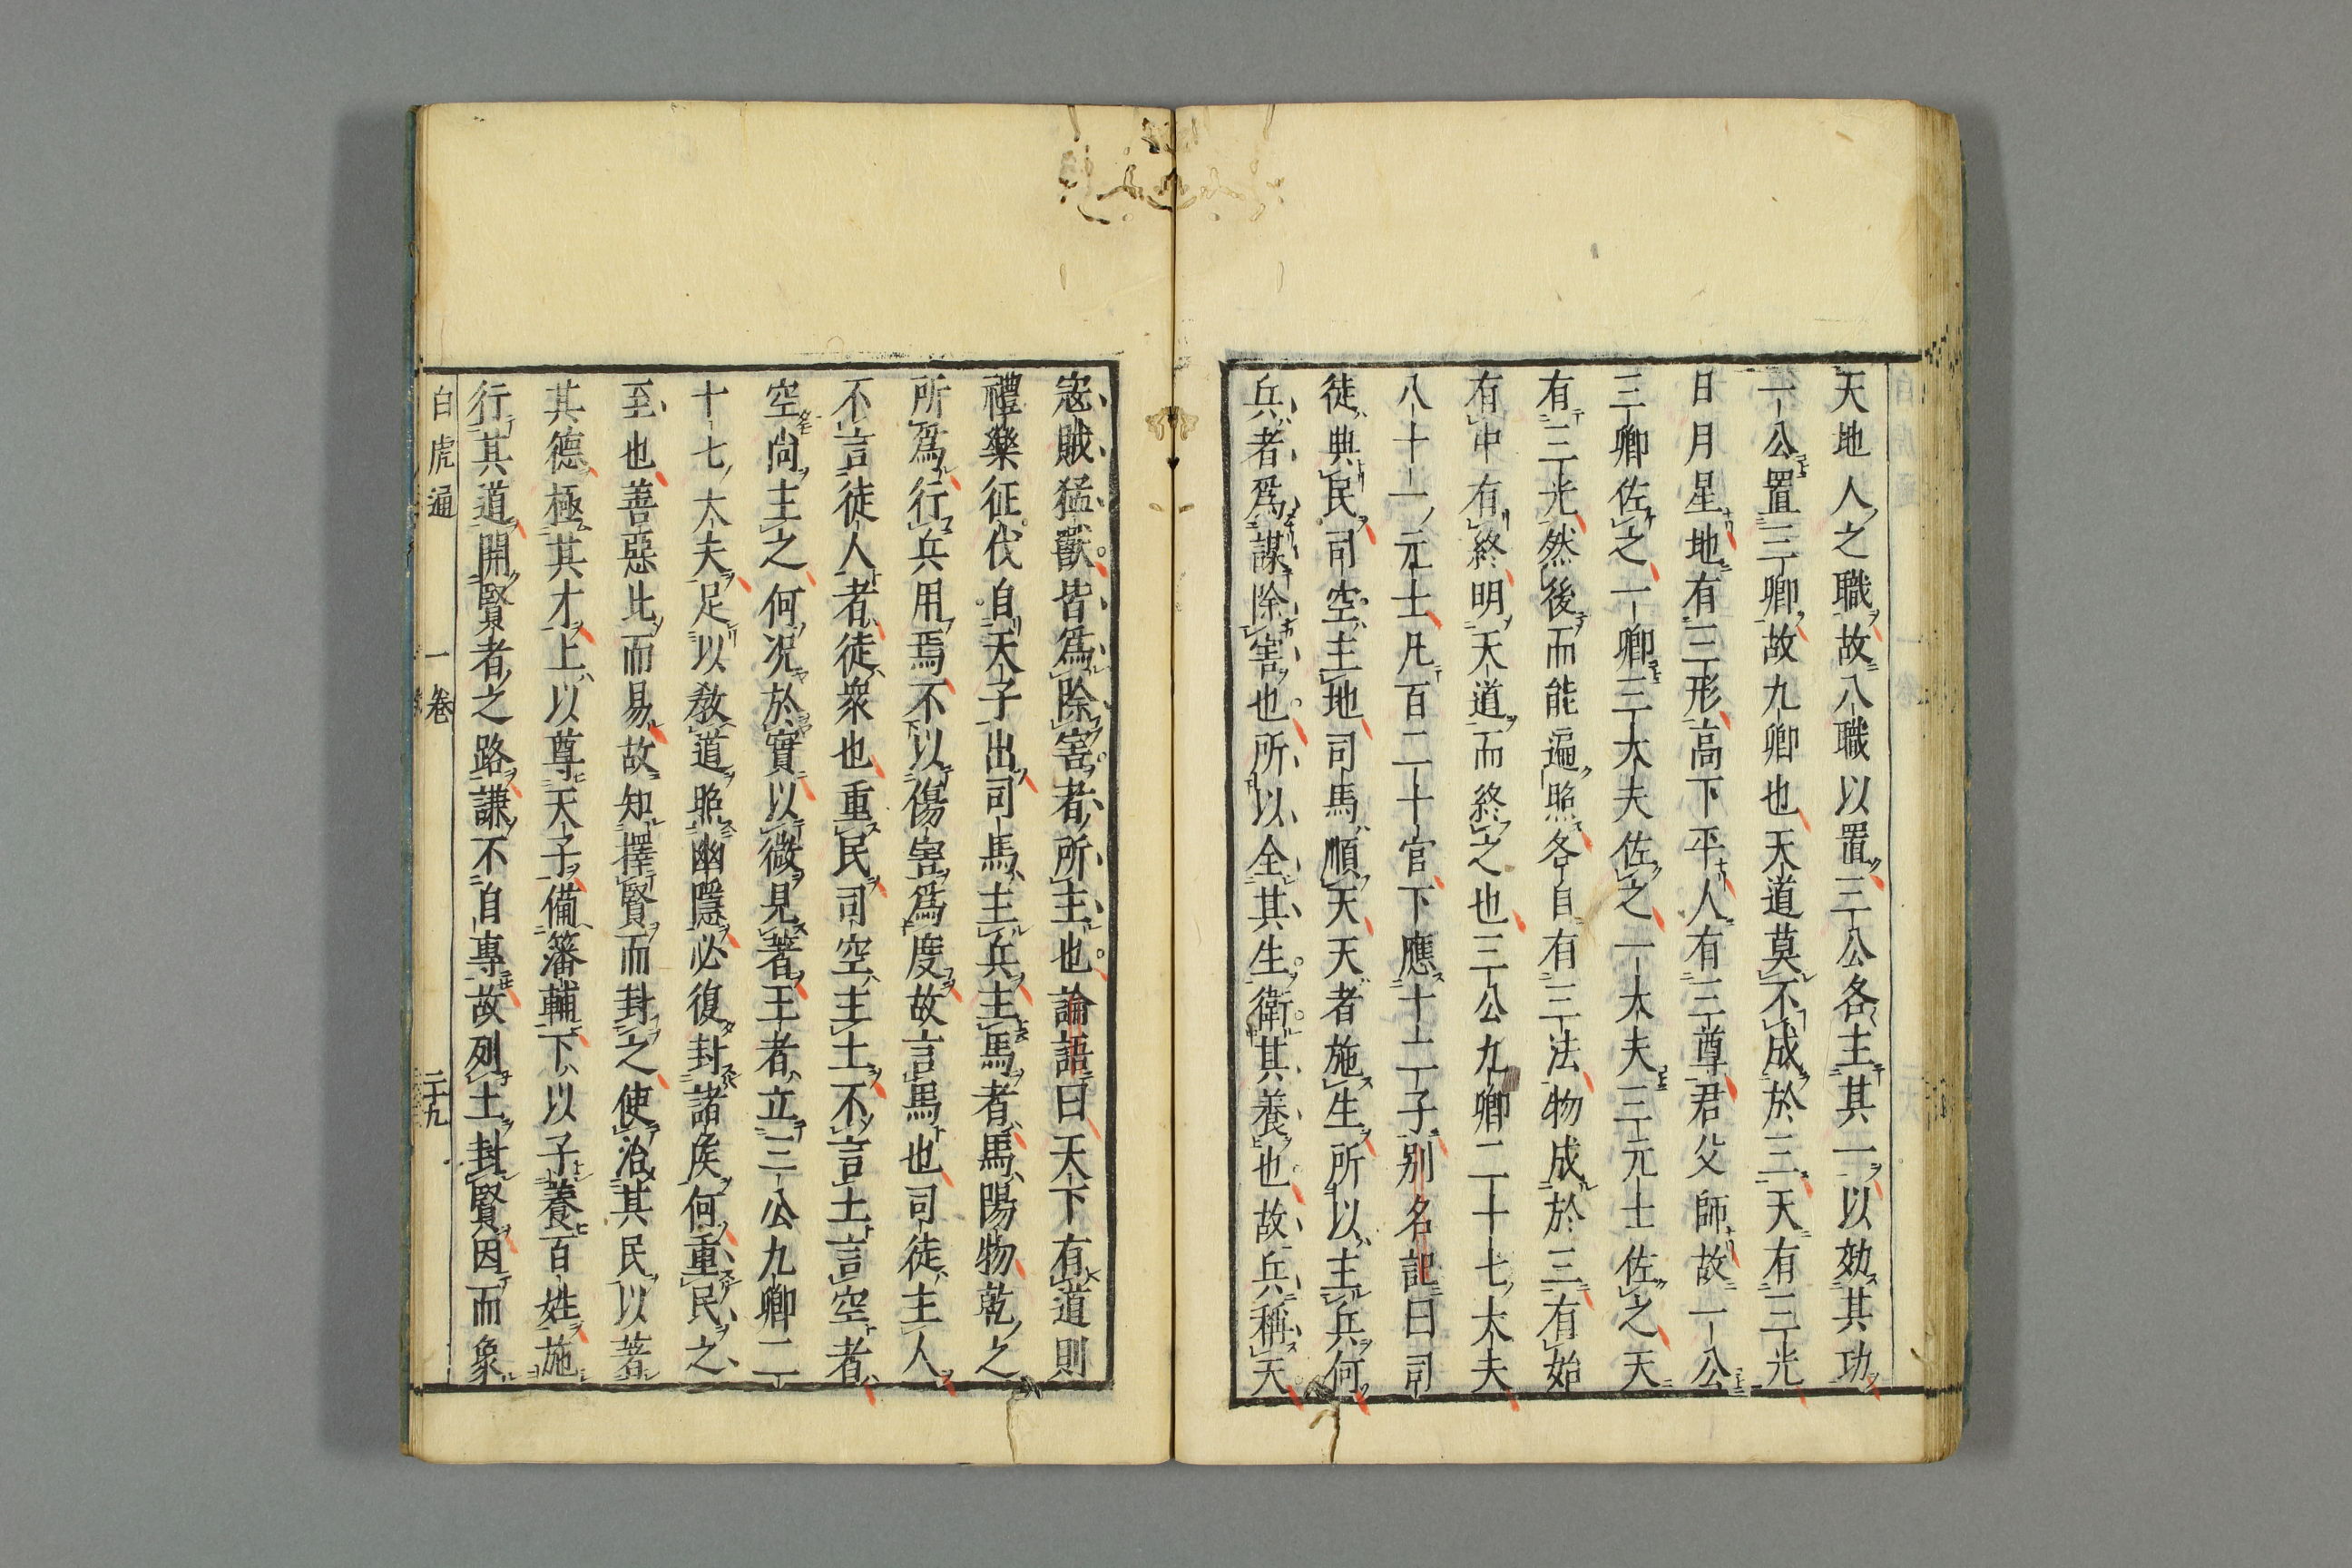 天地人之職故八職以置三公各主其一以効其功
一公置三卿故九卿也天道莫不成於三天有三光
日月星地有三形高下平人有三尊君父師故一公
三卿佐之一卿三大夫佐之一大夫三元士佐之天
有三光然後而能遍照各自有三法物成於三有始
有中有終明天道而終之也三公九卿二十七大夫
八十一元士凡百二十官下應十二子別名記曰司
徒典民司空主地司馬順天天者施生所以主兵何
兵者爲謀除害也所以全其生衛其養也故兵稱天
寇賊猛獸皆爲除害者所主也論語曰天下有道則
禮樂征伐自天子出司馬主兵主馬者馬陽物乾之
所爲行兵用焉不以傷害爲度故言馬也司徒主人
不言徒人者徒衆也重民司空主土不言土言空者
空尚主之何况於實以微見著王者立三公九卿二
十七大夫足以教道照幽隱必復封諸侯何重民之
至也善惡比而易故知擇賢而封之使治其民以著
其德極其才上以尊天子備藩輔下以子養百姓施
行其道開賢者之路謙不自專故列土封賢因而象
白虎通 一卷 二十九